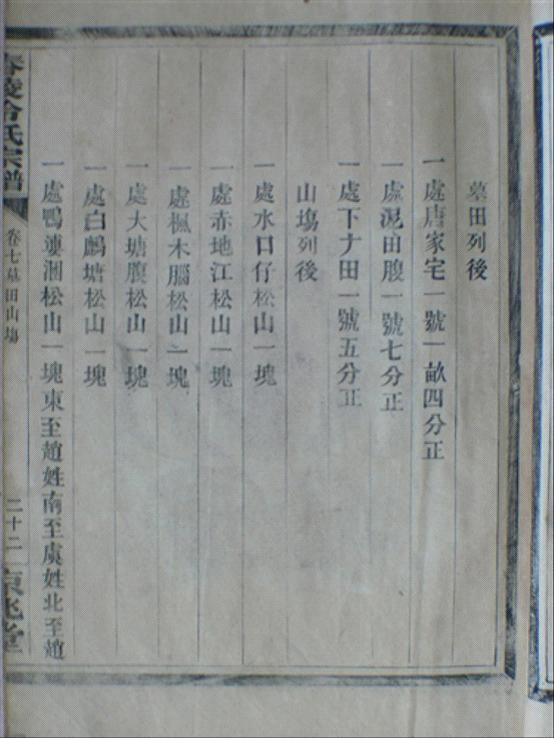 墓田列後
一處唐家宅一號一畝四分正
一處泥田腹一號七分正
一處下丆田一號五分正
山塲列後
一處水口仔松山一塊
一處赤地江松山一塊
一處楓木腦松山一塊
一處大塘腹松山一塊
一處白鷓塘松山一塊
一處鴨婆涃松山一塊東至趙姓南至虞姓北至趙
舂陵冷氏宗譜
卷七墓田山塲
二十二
京兆堂